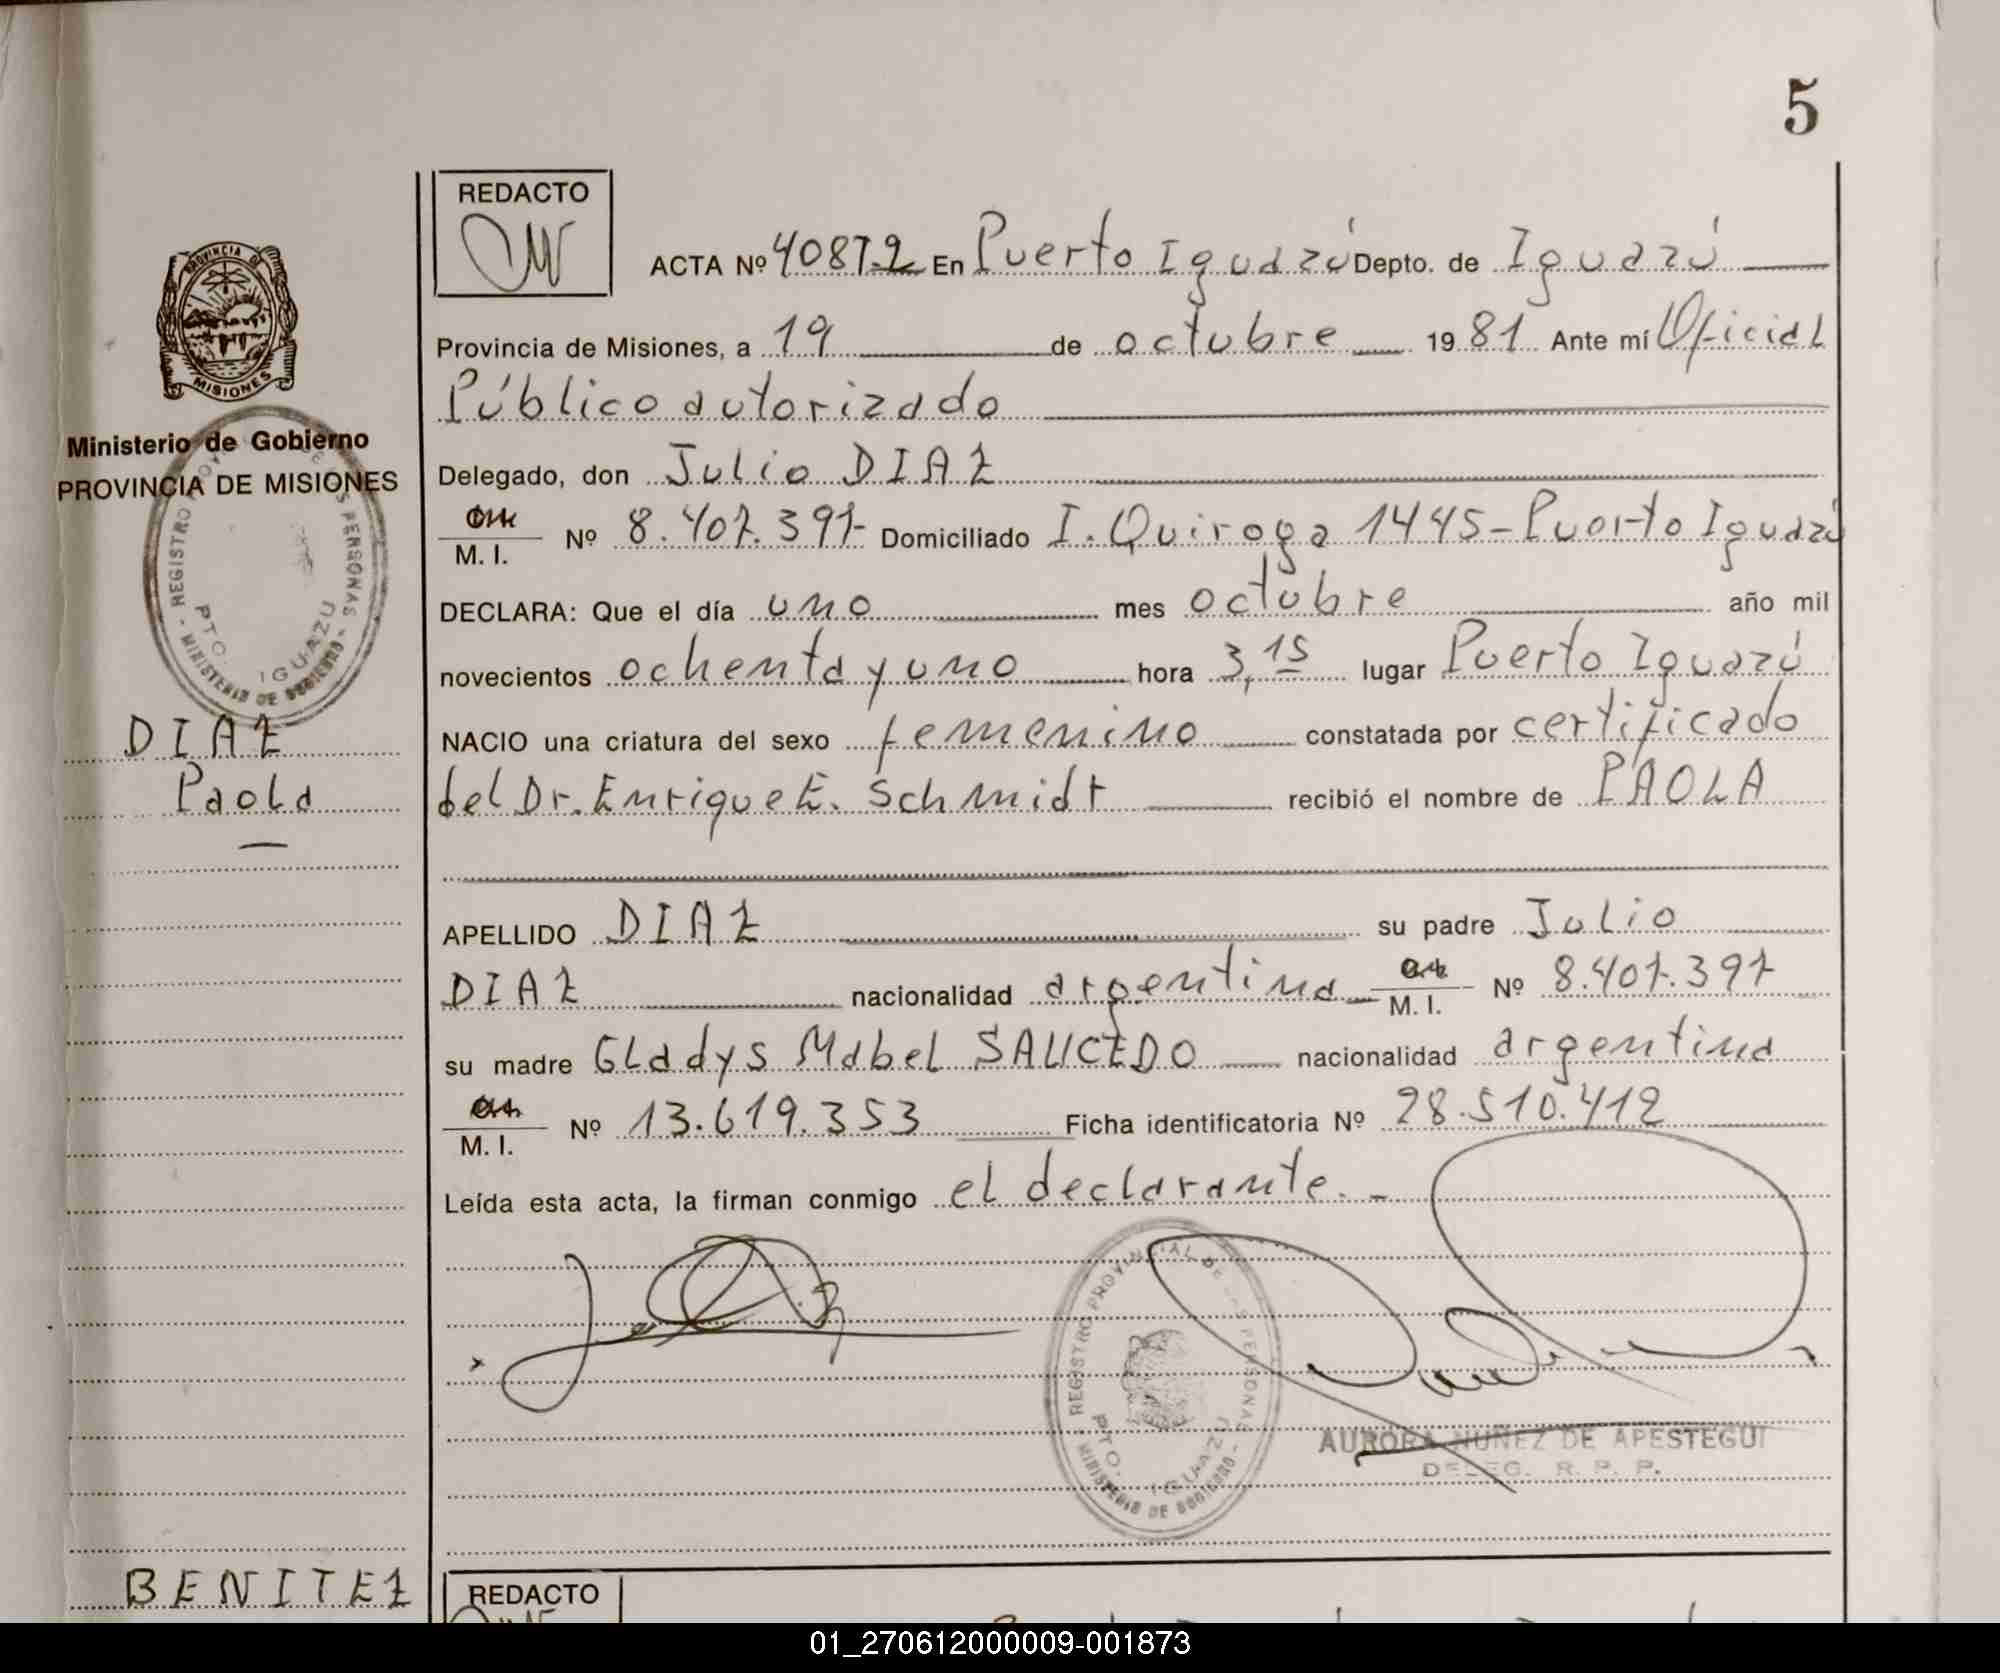 5
REDACTO
ACTA Nº 40872 En Puerto Iguazú Depto. de Iguazú
Provincia de Misiones, a 19 de octubre 1981 Ante mí Oficial
Público autorizado
Delegado, don Julio DIAZ
M. I. Nº 8.407.397 Domiciliado I. Quiroga 1445 - Puerto Iguazú
DECLARA: Que el día uno mes octubre año mil
novecientos ochenta y uno hora 3,15 lugar Puerto Iguazú
NACIO una criatura del sexo femenino constatada por certificado
del Dr. Enrique E. Schmidt recibió el nombre de PAOLA
APELLIDO DIAZ su padre Julio
DIAZ nacionalidad argentina M. I. Nº 8.407.397
su madre Gladys Mabel SAUCEDO nacionalidad argentina
M. I. Nº 13.619.353 Ficha identificatoria Nº 28.510.412
Leída esta acta, la firman conmigo el declarante. -
REGISTRO PROVINCIAL DE LAS PERSONAS
PTO. IGUAZU
MINISTERIO DE GOBIERNO
AURORA NUÑEZ DE APESTEGUI
DELEG. R. P. P.
PROVINCIA DE
MISIONES
Ministerio de Gobierno
PROVINCIA DE MISIONES
REGISTRO PERSONAS
PTO. IGUAZU
MINISTERIO DE GOBIERNO
DIAZ
Paola
BENITEZ
REDACTO
01_270612000009-001873